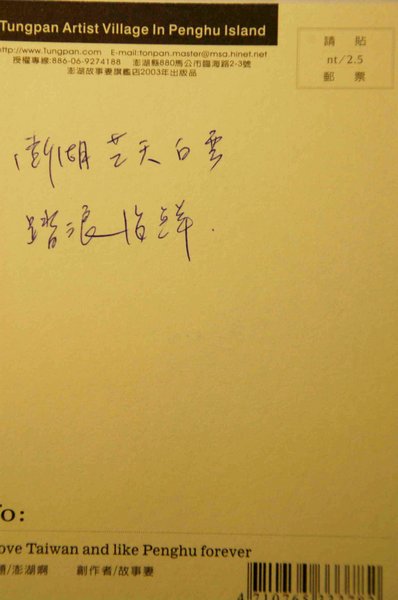 Tungpan Artist Village In Penghu Island
http://www.Tungpan.com E-mail:tonpan.master@msa.hinet.net
授權專線:886-06-9274188 澎湖縣880馬公市臨海路2-3號
澎湖故事妻旗艦店2003年出版品
請 貼
nt/2.5
郵 票
澎湖 天白雲
踏浪海鮮.
To:
ove Taiwan and like Penghu forever
題/澎湖啊 創作者/故事妻